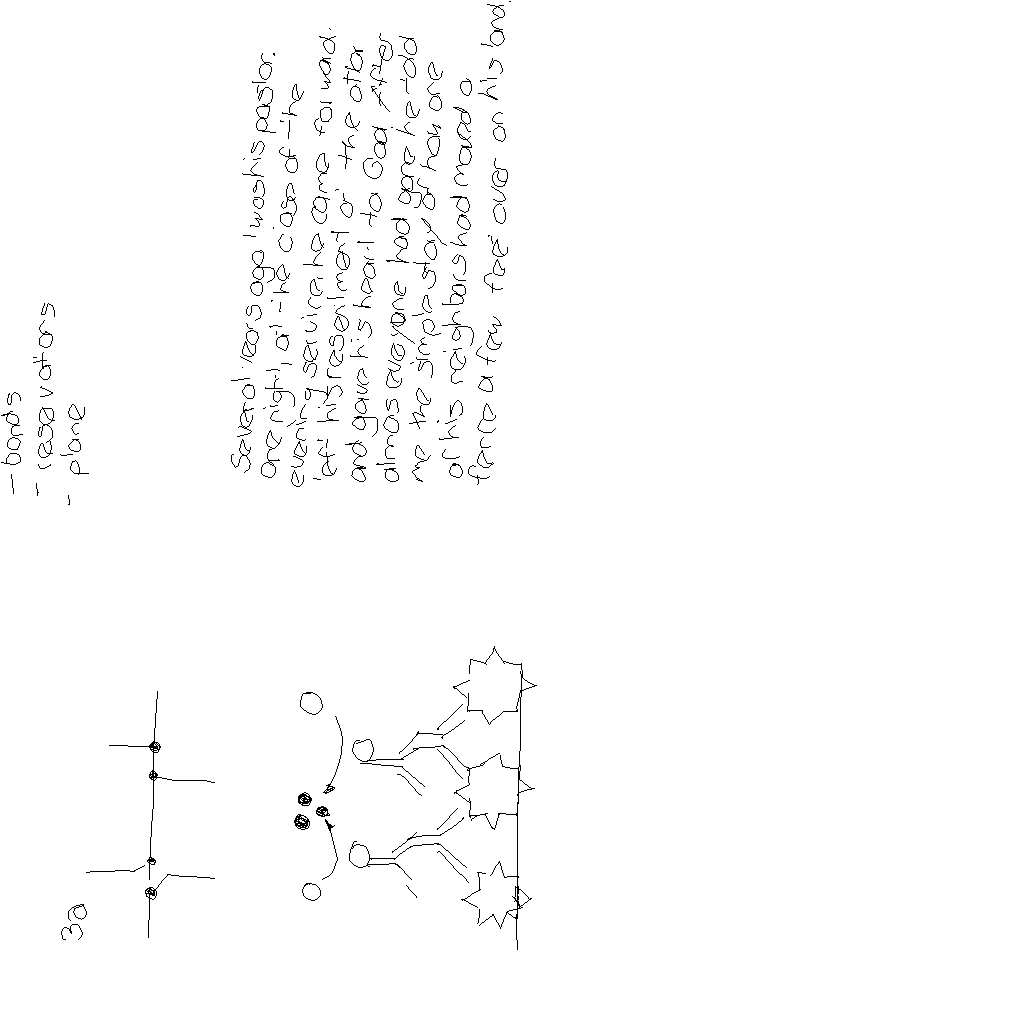 - bonds
- reservations
- plane
Several years ago I was his pastor.
one night, at the close of the
evening service he came forward.
left his resentment at the altar
and gave his heart to God. After
almost everyone had gone he told
me the simple story of how one
of his neighbors had moved a
fence a few feet over on his land.
3a